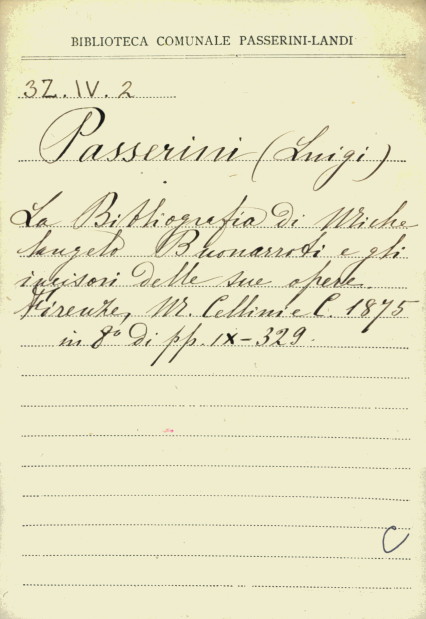 BIBLIOTECA COMUNALE PASSERINI-LANDI
3Z.IV.2
Passerini (Luigi)
La Bibliografia di Miche
langelo Buonarroti e gli
incisori delle sue opere.
Firenze, M. Cellini e C. 1875
in 8° di pp. IX-329.
C